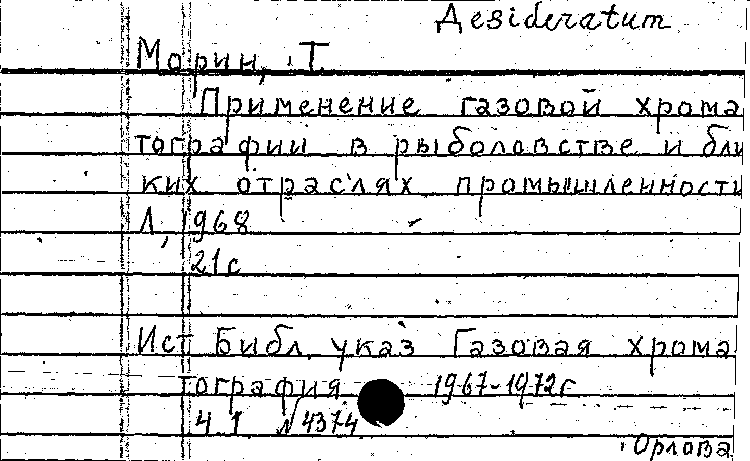 Desideratum
Морин, Т.
Применение газовой хрома
тографии в рыболовстве и бли
ких отраслях промышленности
Л, 1968
21с
Ист Библ. указ Газовая хрома
тография 1967-1972г
Ч 1 №4374
Орлова